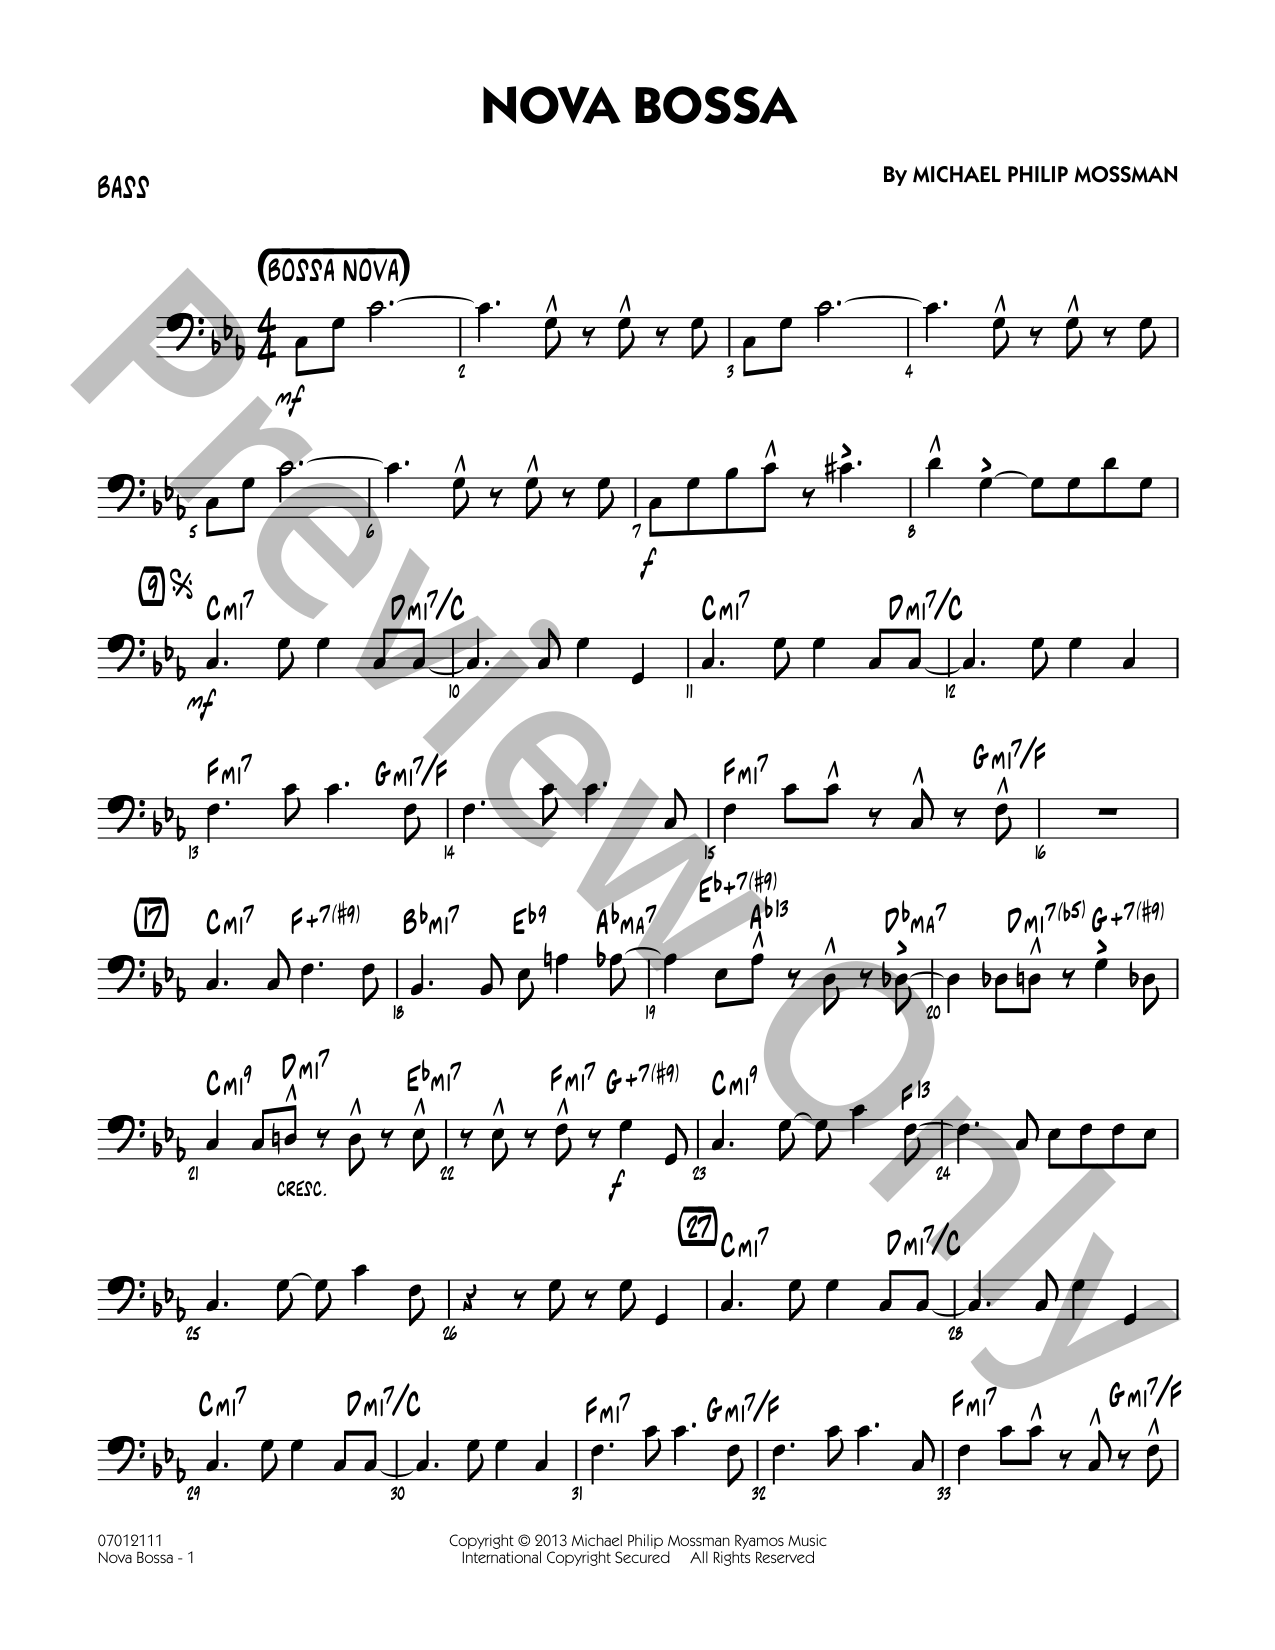 NOVA BOSSA
BASS
By MICHAEL PHILIP MOSSMAN
(BOSSA NOVA)
4
4
mf
2 3 4
5 6 7 8
f
9
CMI7 DMI7/C CMI7 DMI7/C
mf
10 11 12
FMI7 GMI7/F FMI7 GMI7/F
13 14 15 16
17
CMI7 F+7(♯9) B♭MI7 E♭9 A♭MA7 E♭+7(♯9) A♭13 D♭MA7 DMI7(♭5) G+7(♯9)
18 19 20
CMI9 DMI7 E♭MI7 FMI7 G+7(♯9) CMI9 F13
21 22 23 24
CRESC.
f
27
CMI7 DMI7/C
25 26 28
CMI7 DMI7/C FMI7 GMI7/F FMI7 GMI7/F
29 30 31 32 33
07012111
Nova Bossa - 1
Copyright © 2013 Michael Philip Mossman Ryamos Music
International Copyright Secured All Rights Reserved
Preview Only